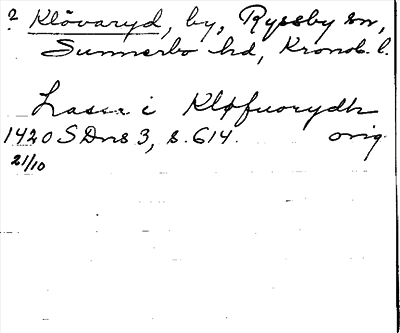 ? Klövaryd, by, Ryssby sn,
Sunnerbo hd, Kronob. l.
Lasse i Kløfuorydh
1420 SDns 3, s. 614. orig.
21/10